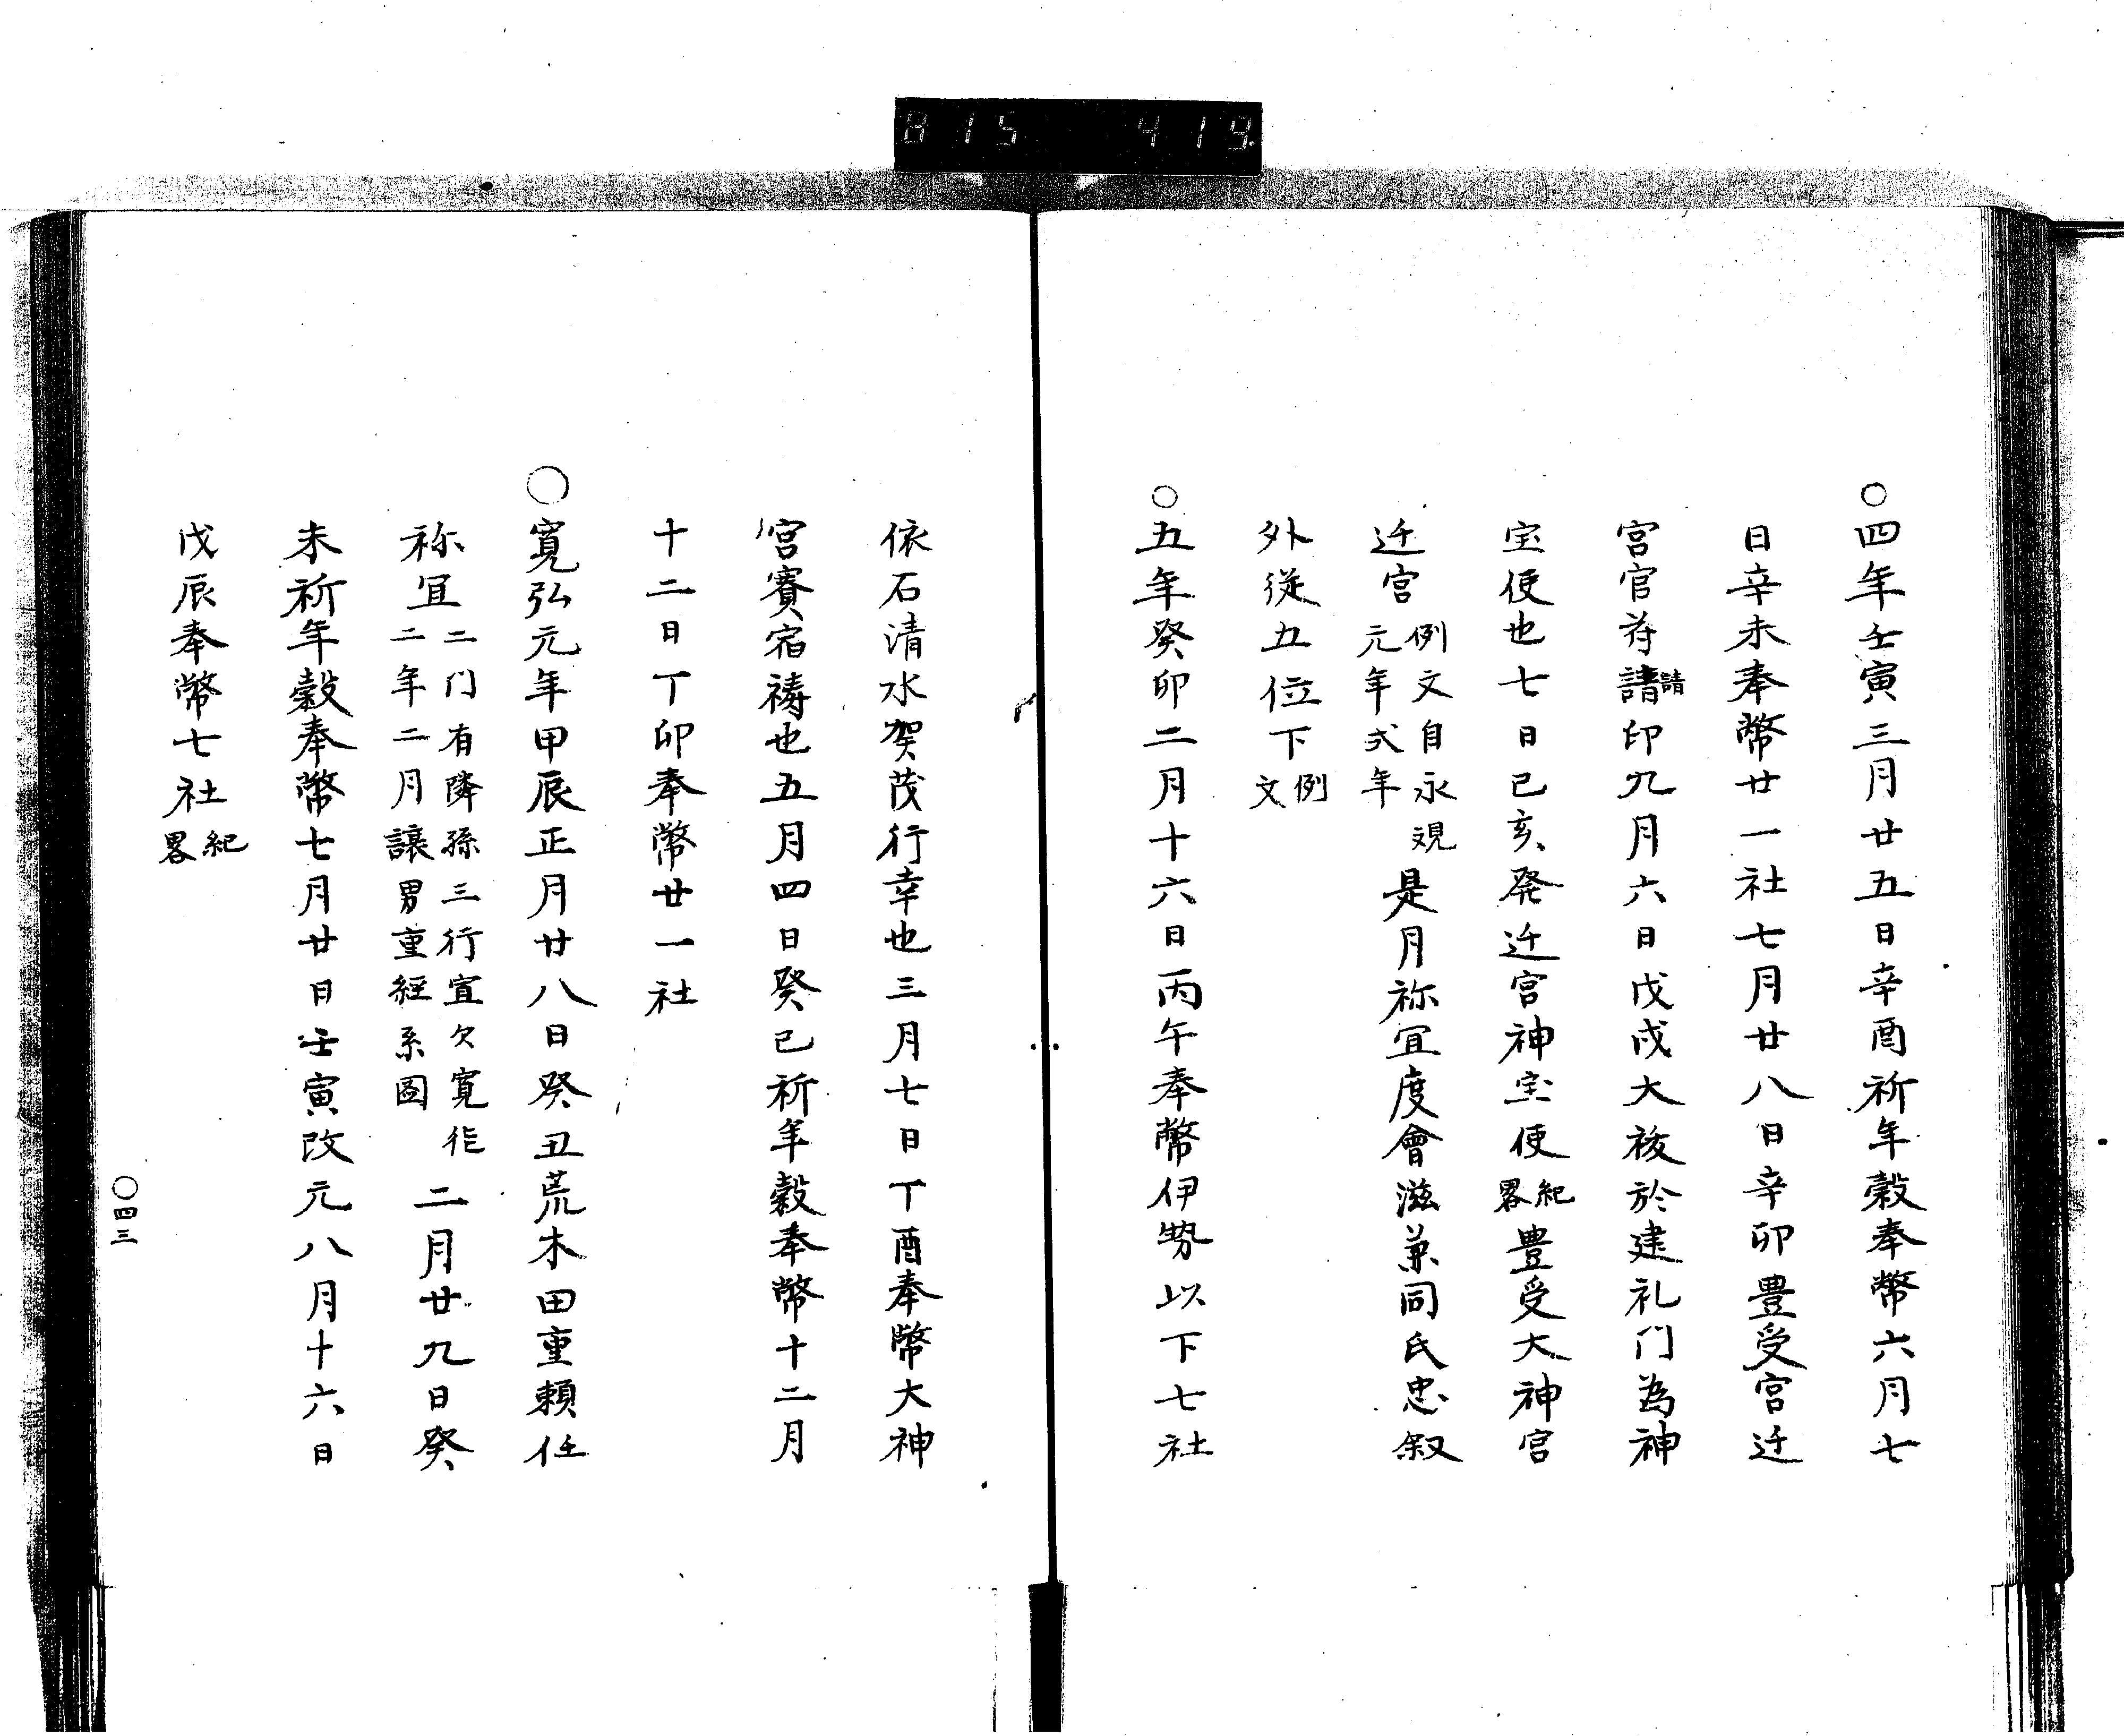 815 419
○四年壬寅三月廿五日辛酉祈年穀奉幣六月七
日辛未奉幣廿一社七月廿八日辛卯豊受宮迁
宮官符請請印九月六日戊戌大祓於建礼门為神
宝使也七日己亥発迁宮神宝使紀畧豊受大神宮
迁宮例文自永𮗚元年弍年是月祢宜度會滋兼同氏忠叙
外従五位下例文
○五年癸卯二月十六日丙午奉幣伊勢以下七社
依石清水賀茂行幸也三月七日丁酉奉幣大神
宮賽宿祷也五月四日癸巳祈年穀奉幣十二月
十二日丁卯奉幣廿一社
○寛弘元年甲辰正月廿八日癸丑荒木田重頼任
祢宜二门有隣孫三行宜欠寛作二年二月譲男重経系图二月廿九日癸
未祈年穀奉幣七月廿日壬寅改元八月十六日
戊辰奉幣七社紀畧
〇四三